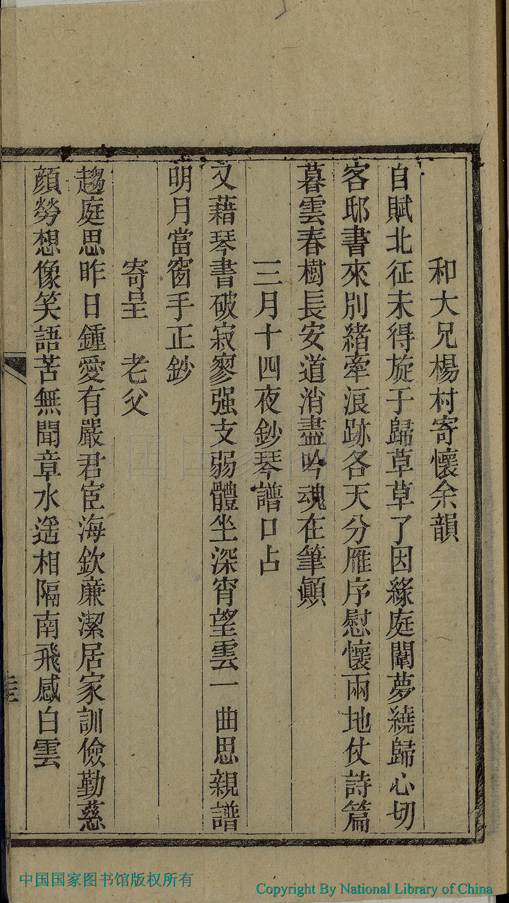 和大兄楊村寄懷余韻
自賦北征未得旋于歸草草了因緣庭闈夢繞歸心切
客邸書來別緒牽浪跡各天分雁序慰懷兩地仗詩篇
暮雲春樹長安道消盡吟魂在筆顚
三月十四夜鈔琴譜口占
又藉琴書破寂寥强支弱體坐深宵望雲一曲思親譜
明月當窗手正鈔
寄呈 老父
趨庭思昨日鍾愛有嚴君宦海欽廉潔居家訓儉勤慈
顏勞想像笑語苦無聞章水遥相隔南飛感白雲
中国国家图书馆版权所有
Copyright By National Library of China